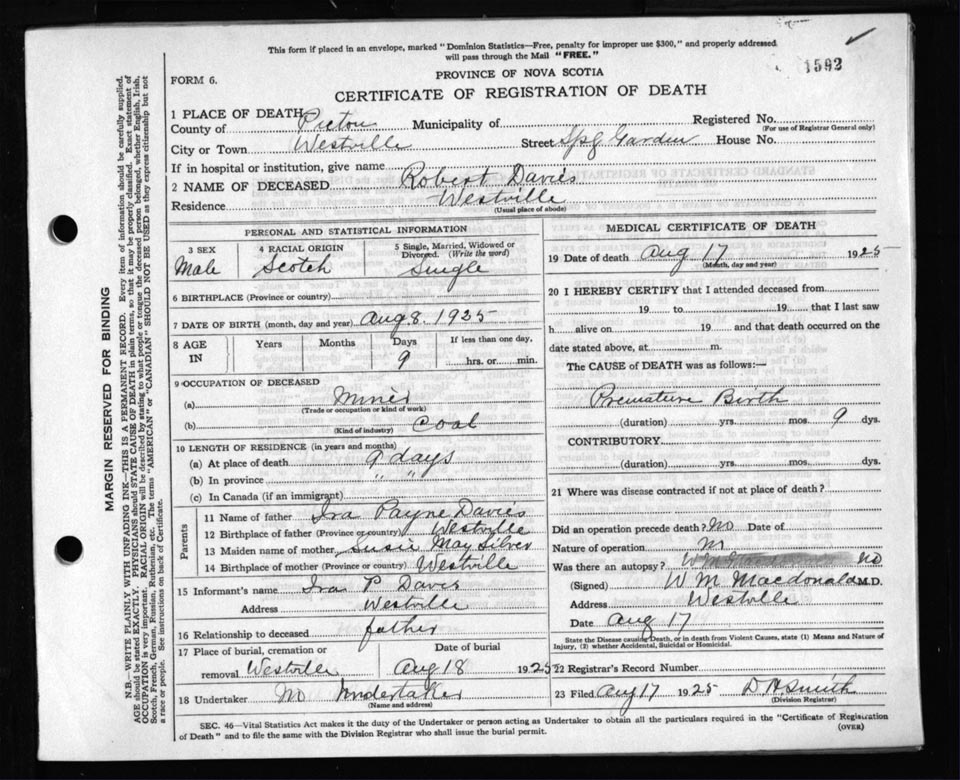 This form if placed in an envelope, marked "Dominion Statistics—Free, penalty for improper use $300," and properly addressed
will pass through the Mail "FREE."
1592
PROVINCE OF NOVA SCOTIA
FORM 6.
CERTIFICATE OF REGISTRATION OF DEATH
1 PLACE OF DEATH
County of Pictou Municipality of Registered No.
(For use of Registrar General only)
City or Town Westville Street Spg Garden House No.
If in hospital or institution, give name
2 NAME OF DECEASED Robert Davies
Residence Westville
(Usual place of abode)
PERSONAL AND STATISTICAL INFORMATION
3 SEX 4 RACIAL ORIGIN 5 Single, Married, Widowed or Divorced. (Write the word)
Male Scotch Single
6 BIRTHPLACE (Province or country)
7 DATE OF BIRTH (month, day and year) Aug 8. 1925
8 AGE IN Years Months Days If less than one day,
9 hrs. or min.
9 OCCUPATION OF DECEASED
(a) Miner
(Trade or occupation or kind of work)
(b) Coal
(Kind of industry)
10 LENGTH OF RESIDENCE (in years and months)
(a) At place of death 9 days
(b) In province " "
(c) In Canada (if an immigrant)
Parents
11 Name of father Ira Payne Davies
12 Birthplace of father (Province or country) Westville
13 Maiden name of mother Susie May Silver
14 Birthplace of mother (Province or country) Westville
15 Informant's name Ira P Davis
Address Westville
16 Relationship to deceased father
17 Place of burial, cremation or removal Westville Date of burial Aug 18 1925
18 Undertaker No Undertaker
(Name and address)
MEDICAL CERTIFICATE OF DEATH
19 Date of death Aug 17 1925
(Month, day and year)
20 I HEREBY CERTIFY that I attended deceased from
19 to 19 that I last saw
h alive on 19 and that death occurred on the
date stated above, at m.
The CAUSE of DEATH was as follows:—
Premature Birth
(duration) yrs. mos. 9 dys.
CONTRIBUTORY
(duration) yrs. mos. dys.
21 Where was disease contracted if not at place of death?
Did an operation precede death? No Date of
Nature of operation
Was there an autopsy? No
(Signed) W M Macdonald M.D.
Address Westville
Date Aug 17
State the Disease causing Death, or in death from Violent Causes, state (1) Means and Nature of
Injury, (2) whether Accidental, Suicidal or Homicidal.
22 Registrar's Record Number
23 Filed Aug 17 1925 D H Smith
(Division Registrar)
SEC. 46—Vital Statistics Act makes it the duty of the Undertaker or person acting as Undertaker to obtain all the particulars required in the "Certificate of Registration
of Death" and to file the same with the Division Registrar who shall issue the burial permit.
(OVER)
MARGIN RESERVED FOR BINDING
N.B.—WRITE PLAINLY WITH UNFADING INK—THIS IS A PERMANENT RECORD. Every item of information should be carefully supplied.
AGE should be stated EXACTLY. PHYSICIANS should STATE CAUSE OF DEATH in plain terms, so that it may be properly classified. Exact statement of
OCCUPATION is very important. RACIAL ORIGIN will be described by stating to what people or tongue the deceased person belonged, whether English, Irish,
Scotch, French, German, Russian, Ruthenian, etc. The terms "AMERICAN" or "CANADIAN" SHOULD NOT BE USED as they express citizenship but not
a race or people. See instructions on back of Certificate.